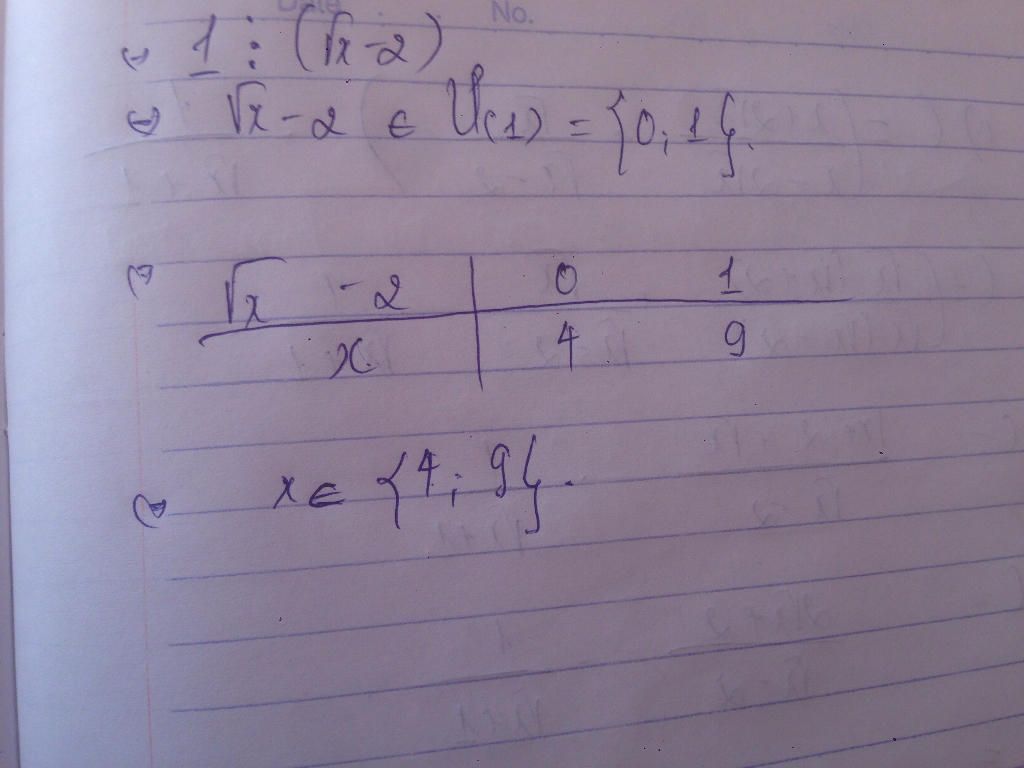 No.
⇒ 1 ⋮ (√x - 2)
⇔ √x - 2 ∈ Ư(1) = {0; 1}.
⇒ √x - 2 | 0 1
x | 4 9
⇒ x ∈ {4; 9}.